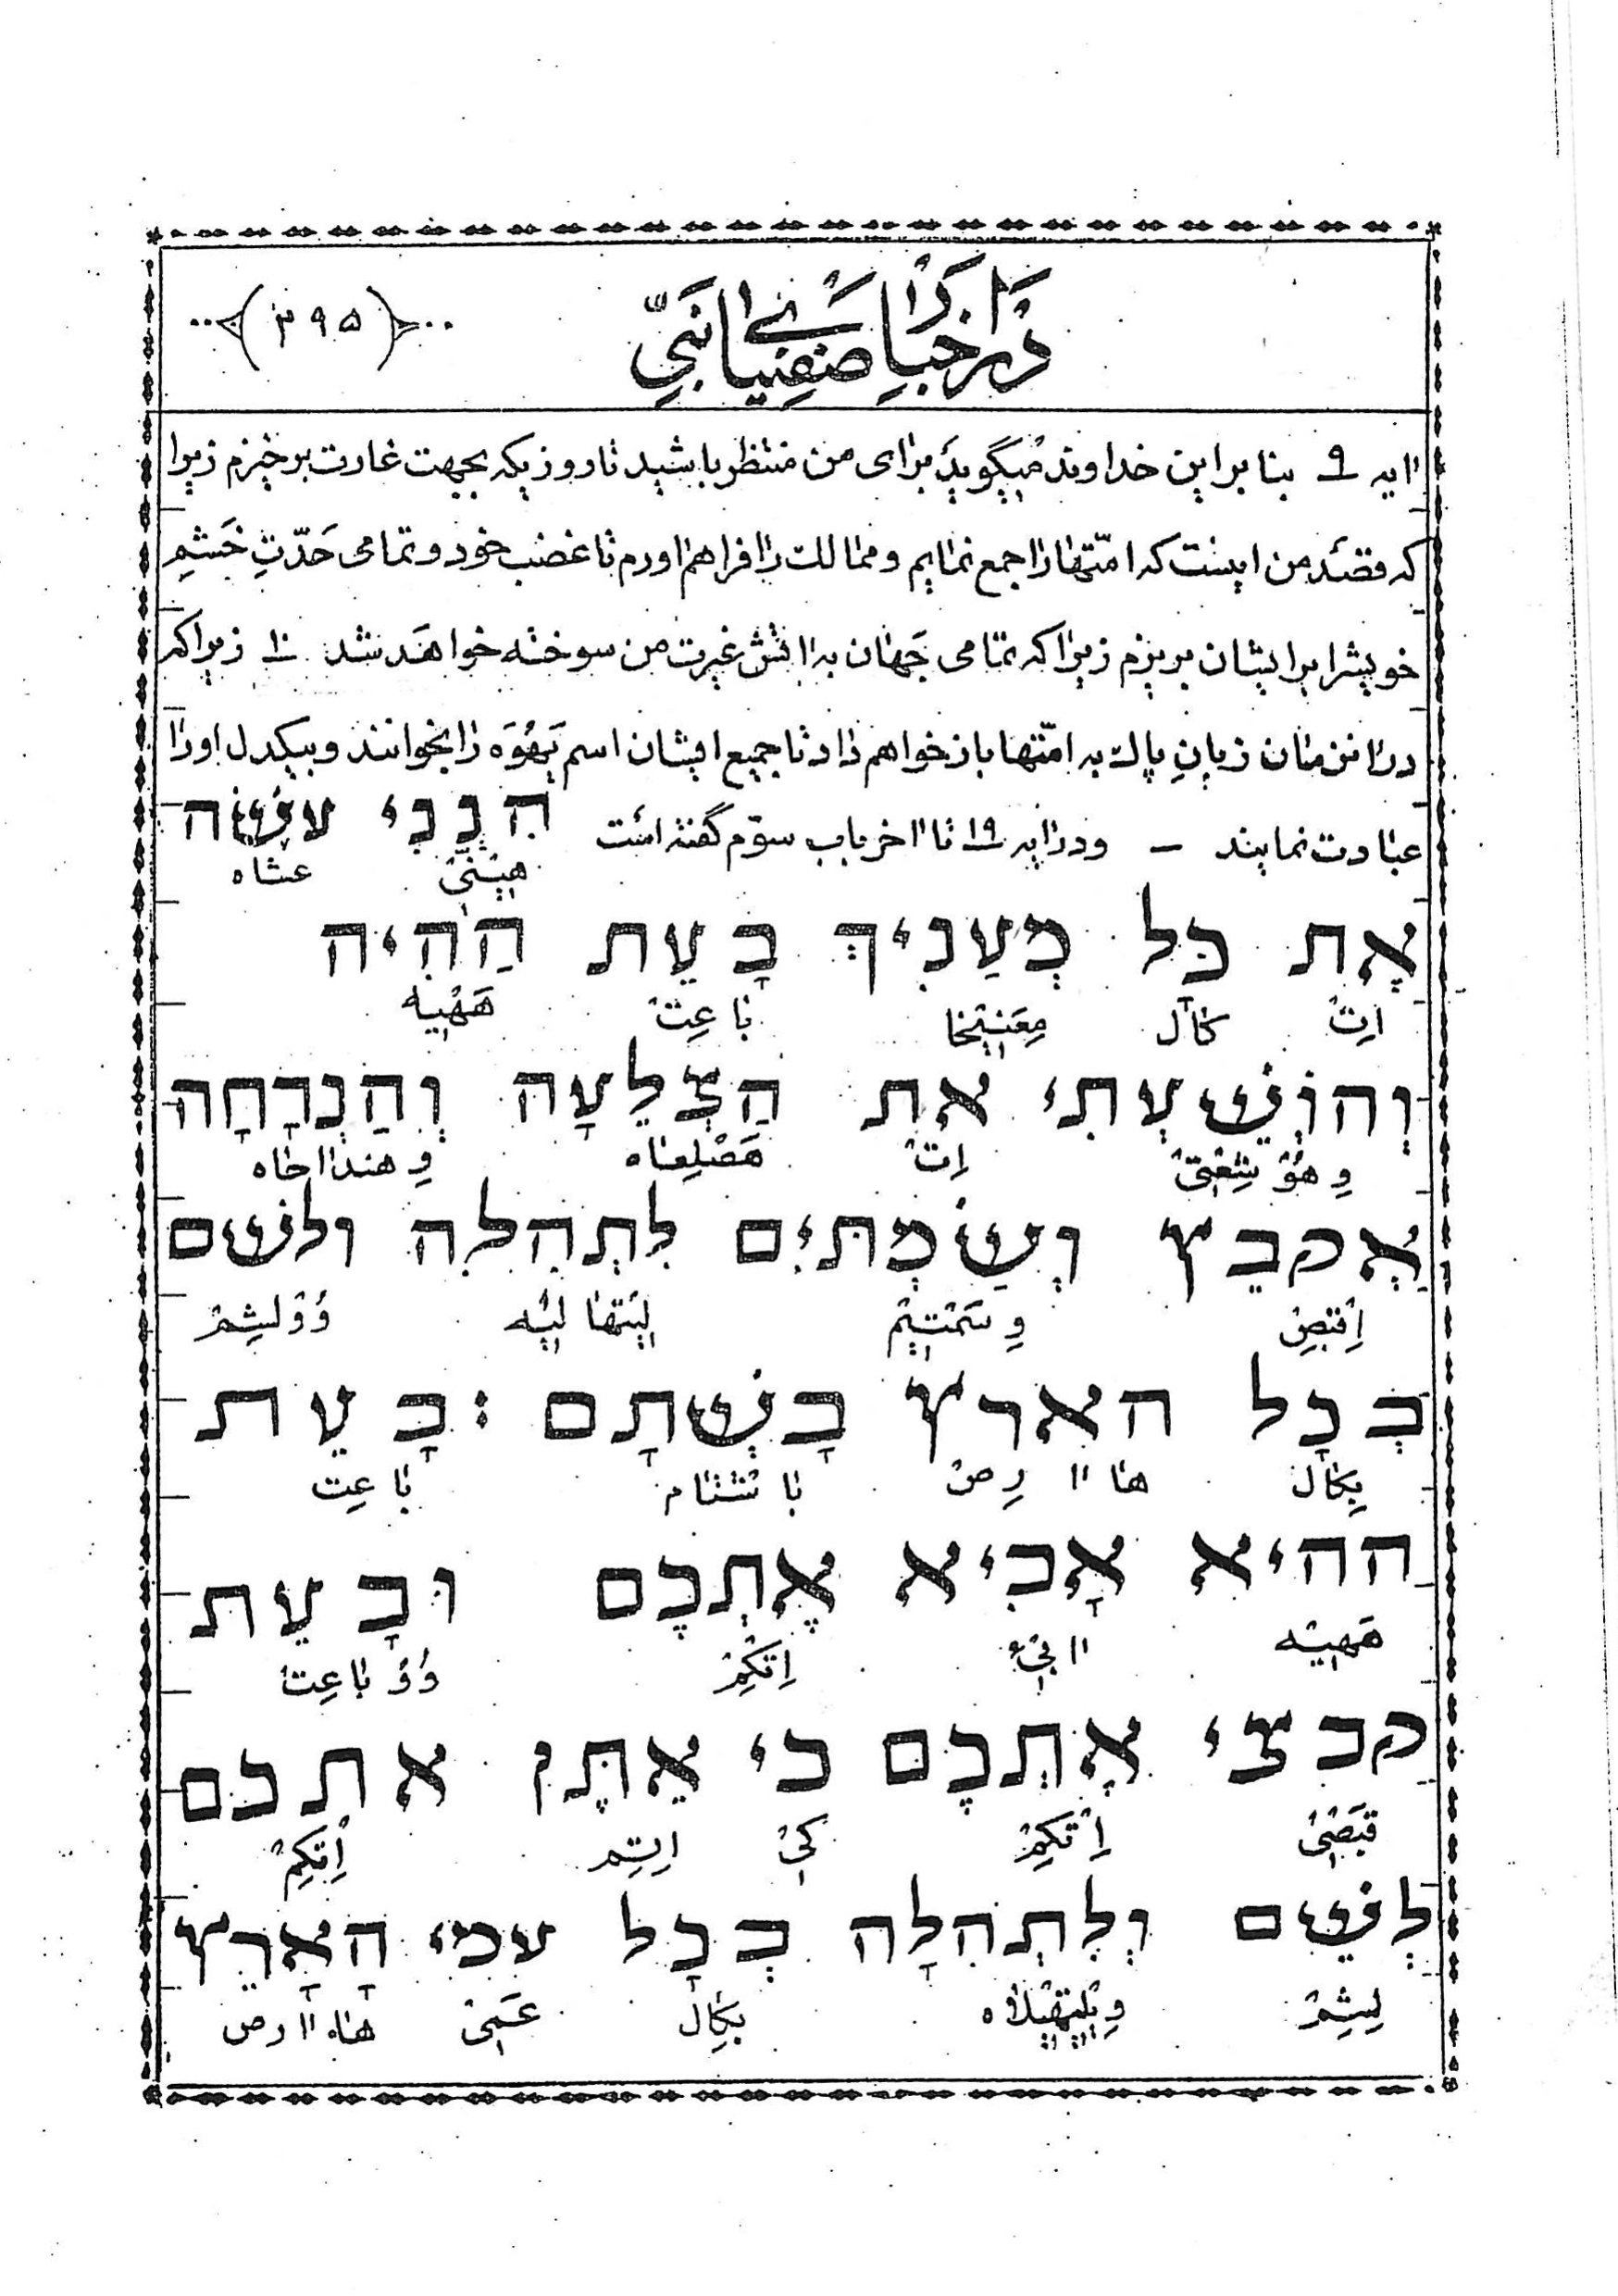 در اخبار صفنیای نبی
(۳۹۵)
اایه ۹ بنا براین خداوند میگوید برای من منتظر باشید تا روزیکه بجهت غارت برخیزم زیرا
که قصد من اینست که امّتها را جمع نمایم و ممالک را فراهم اورم تا غضب خود و تمامی حَدّتِ خَشمِ
خویشرا برایشان بریزم زیرا که تمامی جَهان به اتش غیرت من سوخته خواهَد شد ۱۰ زیراکه
در انزمان زبانِ پاک به امّتها باز خواهم داد تا جمیع ایشان اسم یَهُوَه را بخوانند و بیکدل او را
عبادت نمایند – و در ایه ۱۹ تا اخر باب سوّم گفته است הִנְנִי עֹשֶׂה
هِینِنیْ عشاه
אֶת כָּל מְעַנִּיךְ בָּעֵת הַהִיה
اِتْ کال مِعَنیْخا باعِتْ هَهْیه
וְהוֹשֵׁעְתִּי אֶת הַצֹּלֵעָה וְהַנִּדָּחָה
وِ هُوْشِعْتیْ اِتْ هَصْلِعاه وِ هنداحاه
אֲקַבֵּץ וְשַׂמְתִּיִם לִתְהִלִה ולשם
اِقْبِصْ وِ سَمْتیْمْ لیْتهالیْه وُوْلشِمْ
בְּכָל הארץ בָּשְׁתָּם : בָּעֵת
بِکال هااا رِصْ باشْتام باعِت
ההיא אָבִיא אֶתְכֶם וּבָעֵת
هَهیْه اابیْء اِتکِمْ وُوْ باعِتْ
קבצי אֶתְכֶם כי אֵתֶּן אתכם
قَبْصیْ اِتْکِمْ کیْ اِتِم اِتکِمْ
לְשֵׁם וְלִתְהִלָּה בְּכָל עמי הָאָרֶץ
لِشِمْ وِلیْتهیْلاه بکال عَمیْ هاه اارص